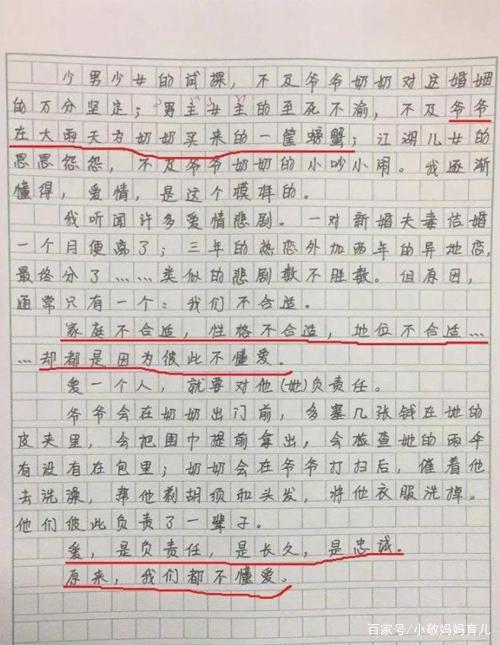 少男少女的试探，不及爷爷奶奶对这婚姻
的万分坚定；男主女主的至死不渝，不及爷爷
在大雨天为奶奶买来的一筐螃蟹；江湖儿女的
恩恩怨怨，不及爷爷奶奶的小吵小闹。我逐渐
懂得，爱情，是这个模样的。
我听闻许多爱情悲剧。一对新婚夫妻结婚
一个月便离了；三年的热恋外加两年的异地恋，
最终分了……类似的悲剧数不胜数。但原因，
通常只有一个：我们不合适。
家庭不合适，性格不合适，地位不合适…
…却都是因为彼此不懂爱。
爱一个人，就要对他(她)负责任。
爷爷会在奶奶出门前，多塞几张钱在她的
皮夹里，会把围巾提前拿出，会检查她的雨伞
有没有在包里；奶奶会在爷爷打扫后，催着他
去洗澡，帮他剃胡须和头发，将他衣服洗掉。
他们彼此负责了一辈子。
爱，是负责任，是长久，是忠诚。
原来，我们都不懂爱。
百家号/小敬妈妈育儿